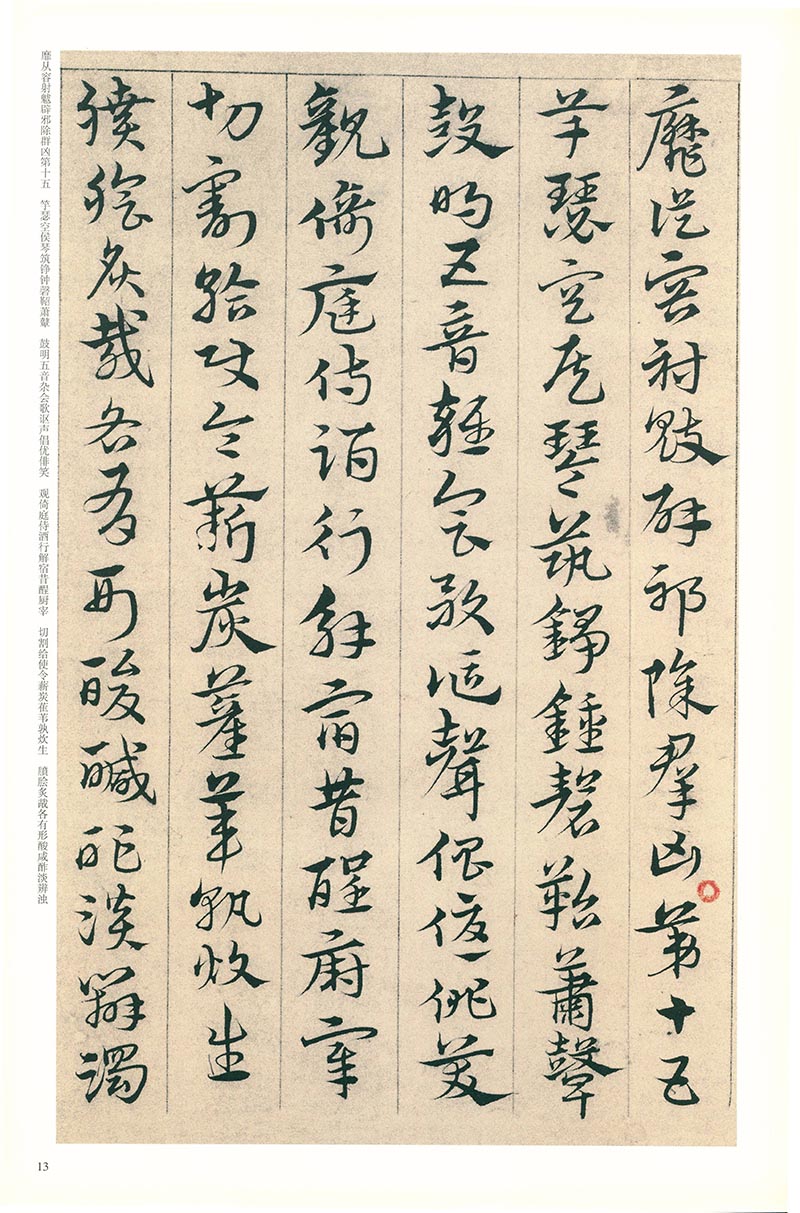 靡從容射魃辟邪除羣凶第十五
竽瑟空侯琴筑錚鍾磬鞀蕭鼙
鼓明五音雜會歌謳聲倡優俳笑
觀倚庭侍酒行解宿昔酲廚宰
切割給使令薪炭萑葦孰炊生
膹膾炙胾各有形酸鹹酢淡辨濁
靡从容射魃辟邪除群凶第十五 竽瑟空侯琴筑铮钟磬鞀萧鼙 鼓明五音杂会歌讴声倡优俳笑 观倚庭侍酒行解宿昔酲厨宰 切割给使令薪炭萑苇孰炊生 膹脍炙胾各有形酸咸酢淡辨浊
13